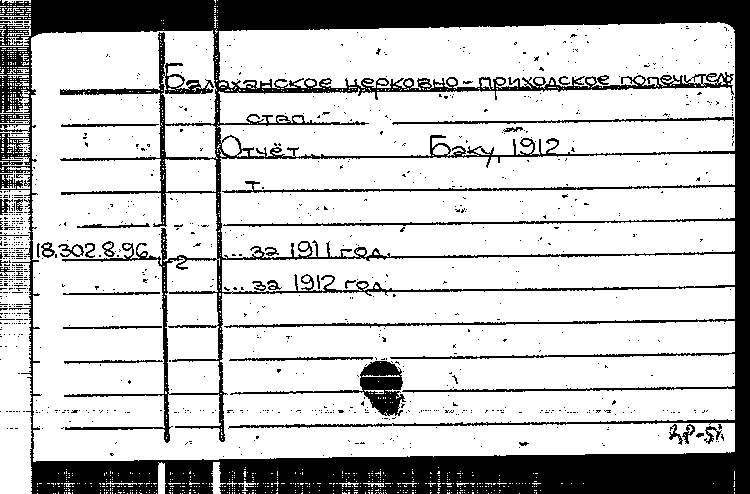 Балаханское церковно-приходское попечитель
ство.
Отчёт... Баку, 1912
т.
18.302.8.96 -2 ... за 1911 год.
... за 1912 год.